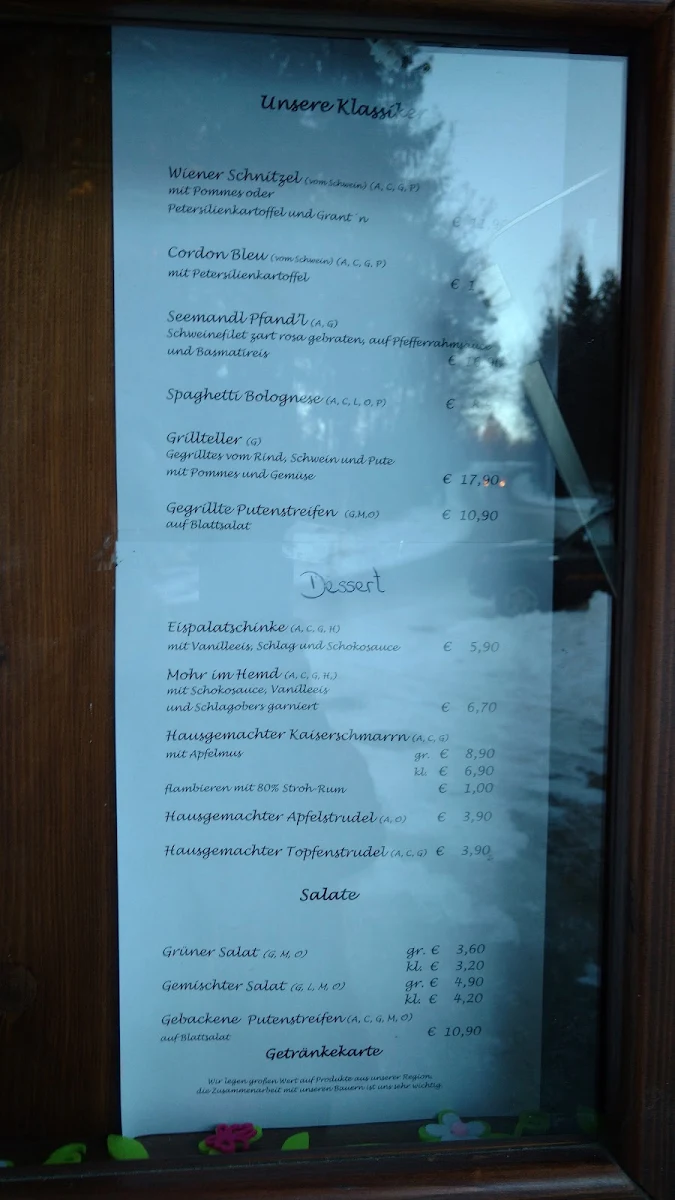 Unsere Klassiker
Wiener Schnitzel (vom Schwein) (A, C, G, P)
mit Pommes oder
Petersilienkartoffel und Grant´n
€
Cordon Bleu (vom Schwein) (A, C, G, P)
mit Petersilienkartoffel
€
Seemandl Pfand'l (A, G)
Schweinefilet zart rosa gebraten, auf Pfefferrahmsauce
und Basmatireis
€
Spaghetti Bolognese (A, C, L, O, P) €
Grillteller (G)
Gegrilltes vom Rind, Schwein und Pute
mit Pommes und Gemüse € 17,90
Gegrillte Putenstreifen (G,M,O) € 10,90
auf Blattsalat
Dessert
Eispalatschinke (A, C, G, H)
mit Vanilleeis, Schlag und Schokosauce € 5,90
Mohr im Hemd (A, C, G, H,)
mit Schokosauce, Vanilleeis
und Schlagobers garniert € 6,70
Hausgemachter Kaiserschmarrn (A, C, G)
mit Apfelmus gr. € 8,90
kl. € 6,90
flambieren mit 80% Stroh-Rum € 1,00
Hausgemachter Apfelstrudel (A, O) € 3,90
Hausgemachter Topfenstrudel (A, C, G) € 3,90
Salate
Grüner Salat (G, M, O) gr. € 3,60
kl. € 3,20
Gemischter Salat (G, L, M, O) gr. € 4,90
kl. € 4,20
Gebackene Putenstreifen (A, C, G, M, O)
auf Blattsalat € 10,90
Getränkekarte
Wir legen großen Wert auf Produkte aus unserer Region,
die Zusammenarbeit mit unseren Bauern ist uns sehr wichtig.